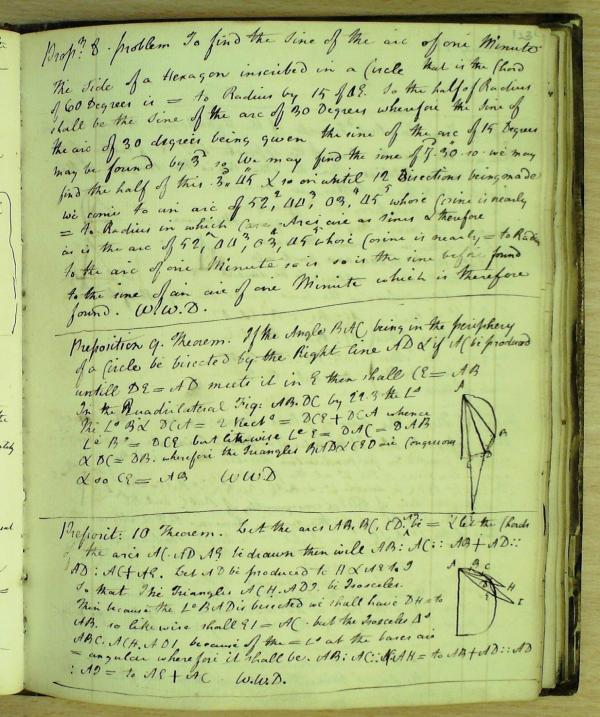 Prop.n 8. Problem To find the Sine of the arc of one Minute
The Side of a Hexagon inscribed in a Circle that is the Chord
of 60 Degrees is = to Radius by 15 of 4E. So the half of Radius
shall be the Sine of the arc of 30 Degrees wherefore the Sine of
the arc of 30 degrees being given the sine of the arc of 15 Degrees
may be found by 3d so We may find the sine of 7°.30 so we may
find the half of this. 3°. 45 & so on until 12 Bisections being made
we come to an arc of 52, 44, 03, 45 whose Cosine is nearly
= to Radius in which Case Arcs are as sines & therefore
as is the arc of 52, 44, 03, 45 whose Cosine is nearly = to Radius
to the arc of one Minute so is so is the sine before found
to the sine of an arc of one Minute which is therefore
found. W.W.D.
Preposition 9. Theorem. If the Angle BAC being in the periphery
of a Circle be bisected by the Right line AD & if AC be produced
untill DE = AD meets it in E then shall CE = AB
In the Quadrilateral Fig: AB.DC by 22.3 the Ls
The Ls B & DCA = 2 Rects = DCE + DCA whence
Ls B = DCE but likewise Ls E = DAC = DAB
& DC = DB. wherefore the Triangles BAD & CED are Congruous
& so CE = AB W.W.D
A
B
C
D
Preposit: 10 Theorem. Let the arcs AB. BC, CD. be = & let the Chords
of the arcs AC. AD AE be drawn then will AB : AC :: AB + AD ::
AD : AC + AE. Let AD be produced to H & AE to I
So that The Triangles ACH. ADI. be Isosceles.
Then because the Ls BAD is bisected we shall have DH = to
AB. so likewise shall EI = AC. but the Isosceles
ABC. ACH. ADI because of the = Ls at the bases are
= angular wherefore it shall be. AB : AC :: AH = to AB + AD :: AD
: AI = to AE + AC W.W.D.
A B C
H
I